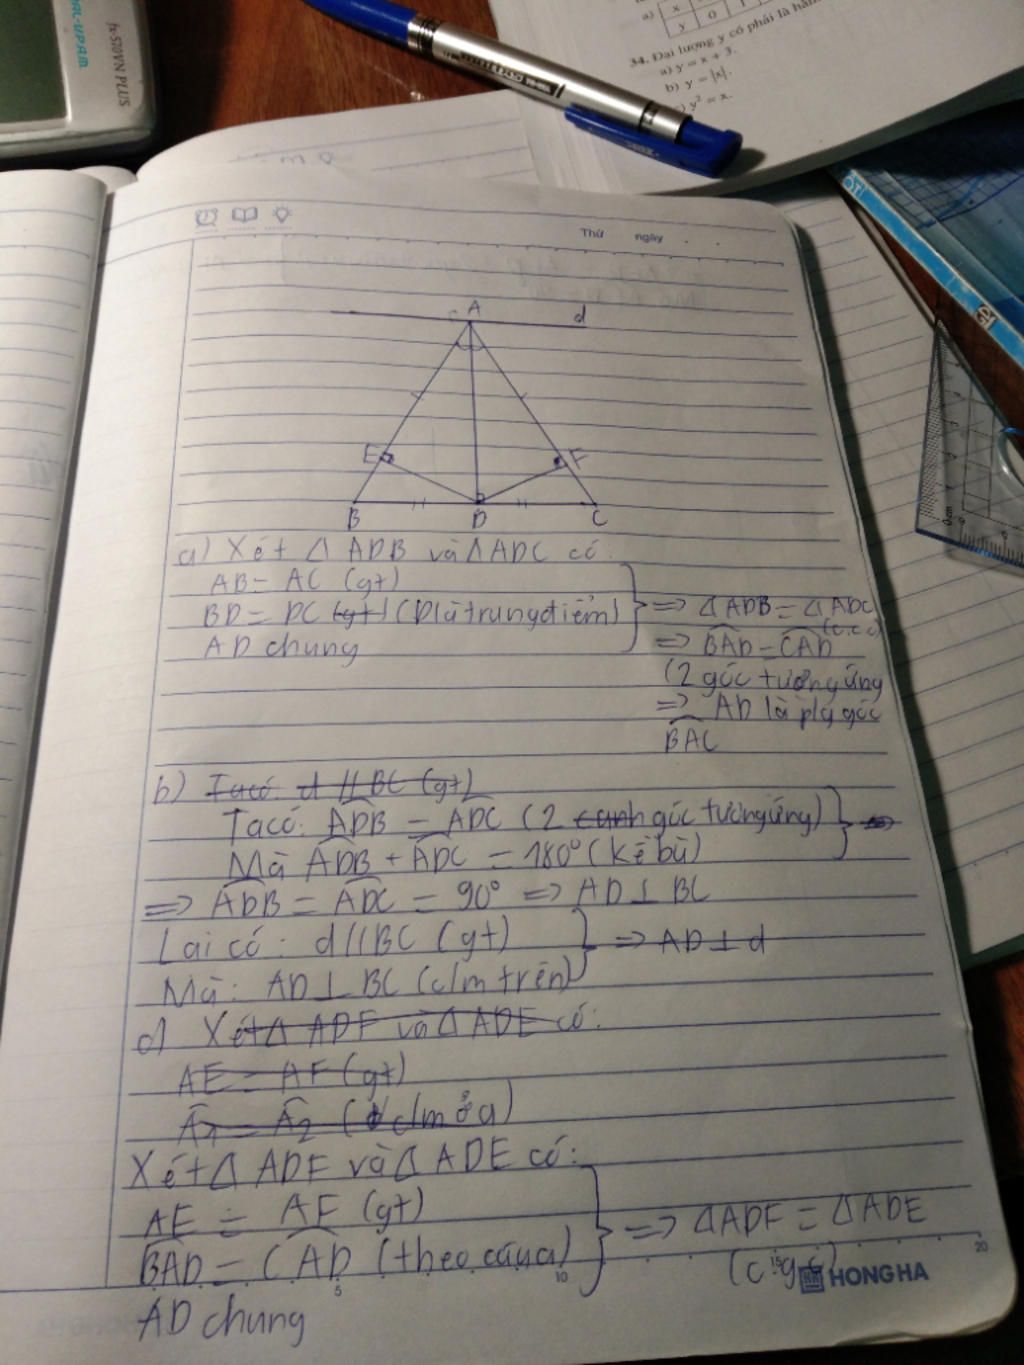 fx-570VN PLUS
a) x
y 0 1
34. Đại lượng y có phải là hàm
a) y = x + 3.
b) y = |x|.
c) y² = x.
Thứ ngày
A d
E F
B D C
a) Xét Δ ADB và Δ ADC có
AB = AC (gt)
BD = DC (gt) (D là trung điểm)
AD chung
=> Δ ADB = Δ ADC
(c.c.c)
=> BAD = CAD
(2 góc tương ứng
=> AD là p/g góc
BAC
b) Ta có d // BC (gt)
Ta có: ADB = ADC (2 cạnh góc tương ứng) =>
Mà ADB + ADC = 180° (kề bù)
=> ADB = ADC = 90° => AD ⊥ BC
Lại có: d // BC (gt) => AD ⊥ d
Mà: AD ⊥ BC (c/m trên)
c) Xét Δ ADF và Δ ADE có:
AE = AF (gt)
A1 = A2 (c/m ở a)
Xét Δ ADF và Δ ADE có:
AE = AF (gt)
BAD = CAD (theo câu a)
AD chung
=> Δ ADF = Δ ADE
(c.g.c)
5 10 15 20
HONG HA